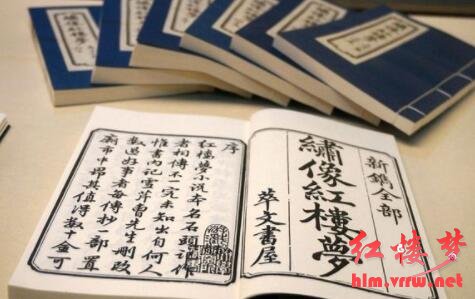 新鐫全部
繡像紅樓夢
萃文書屋
序
紅樓夢小說本名石頭記作
者相傳不一究未知出自何人
惟書內記雪芹曹先生刪改
數過好事者每傳抄一部置
廟市中昂其值得數十金可
红楼梦
hlm.vrrw.net